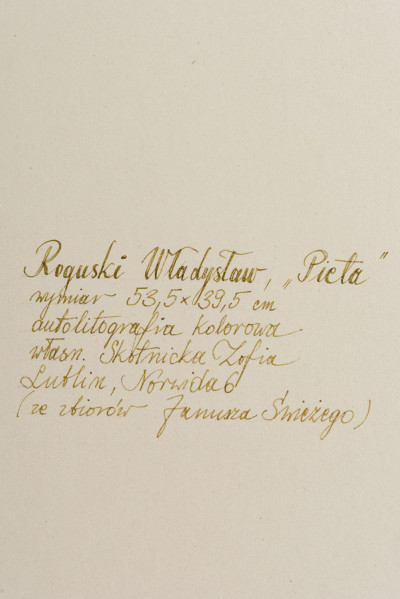 Roguski Władysław, „Pieta"
wymiar 53,5 × 39,5 cm
autolitografia kolorowa
własn. Skotnicka Zofia
Lublin, Norwida 6
(ze zbiorów Janusza Świeżego)